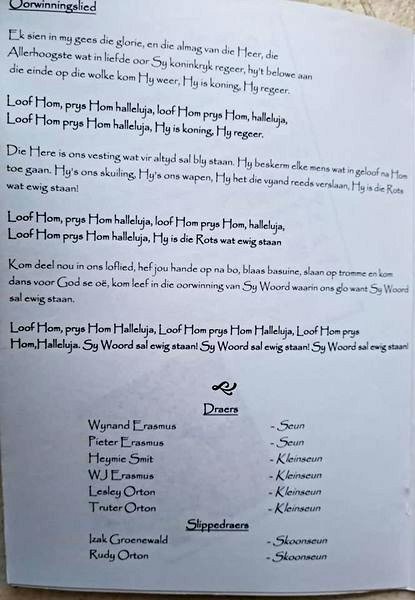 Oorwinningslied
Ek sien in my gees die glorie, en die almag van die Heer, die
Allerhoogste wat in liefde oor Sy koninkryk regeer, hy't belowe aan
die einde op die wolke kom Hy weer, Hy is koning, Hy regeer.
Loof Hom, prys Hom halleluja, loof Hom prys Hom, halleluja,
Loof Hom prys Hom halleluja, Hy is koning, Hy regeer.
Die Here is ons vesting wat vir altyd sal bly staan. Hy beskerm elke mens wat in geloof na Hom
toe gaan. Hy's ons skuiling, Hy's ons wapen, Hy het die vyand reeds verslaan, Hy is die Rots
wat ewig staan!
Loof Hom, prys Hom halleluja, loof Hom prys Hom, halleluja,
Loof Hom prys Hom halleluja, Hy is die Rots wat ewig staan
Kom deel nou in ons loflied, hef jou hande op na bo, blaas basuine, slaan op tromme en kom
dans voor God se oë, kom leef in die oorwinning van Sy Woord waarin ons glo want Sy Woord
sal ewig staan.
Loof Hom, prys Hom Halleluja, Loof Hom prys Hom Halleluja, Loof Hom prys
Hom,Halleluja. Sy Woord sal ewig staan! Sy Woord sal ewig staan! Sy Woord sal ewig staan!
Draers
Wynand Erasmus - Seun
Pieter Erasmus - Seun
Heymie Smit - Kleinseun
WJ Erasmus - Kleinseun
Lesley Orton - Kleinseun
Truter Orton - Kleinseun
Slippedraers
Izak Groenewald - Skoonseun
Rudy Orton - Skoonseun